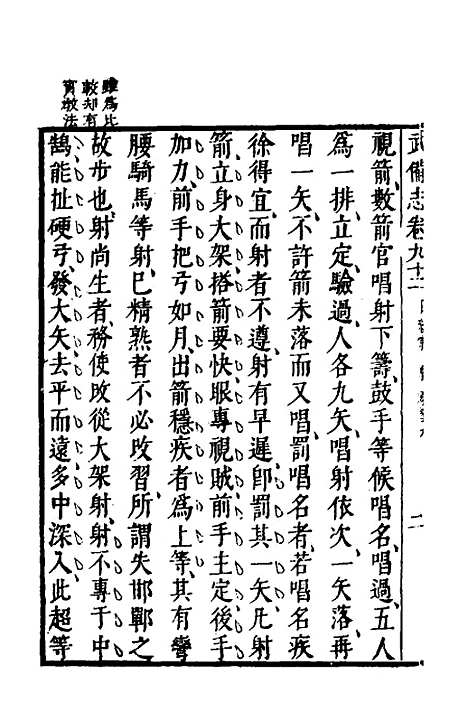 武備志卷九十二 二
視箭、數箭官唱射下籌、鼓手等候唱名、唱過、五人
爲一排、立定、驗過、人各九矢、唱射依次、一矢落、再
唱一矢、不許箭未落而又唱、罰唱名者、若唱名疾
徐得宜、而射者不遵、射有早遲、卽罰其一矢、凡射
箭、立身大架、搭箭要快、眼專視賊、前手主定、後手
加力、前手把弓如月、出箭穩疾者爲上等、其有彎
腰騎馬等射、已精熟者不必改習、所謂失邯鄲之
故步也、射尚生者、務使改從大架射、射不專于中
鵠、能扯硬弓、發大矢、去平而遠、多中深入、此超等
雖爲比
較却有
實敎法